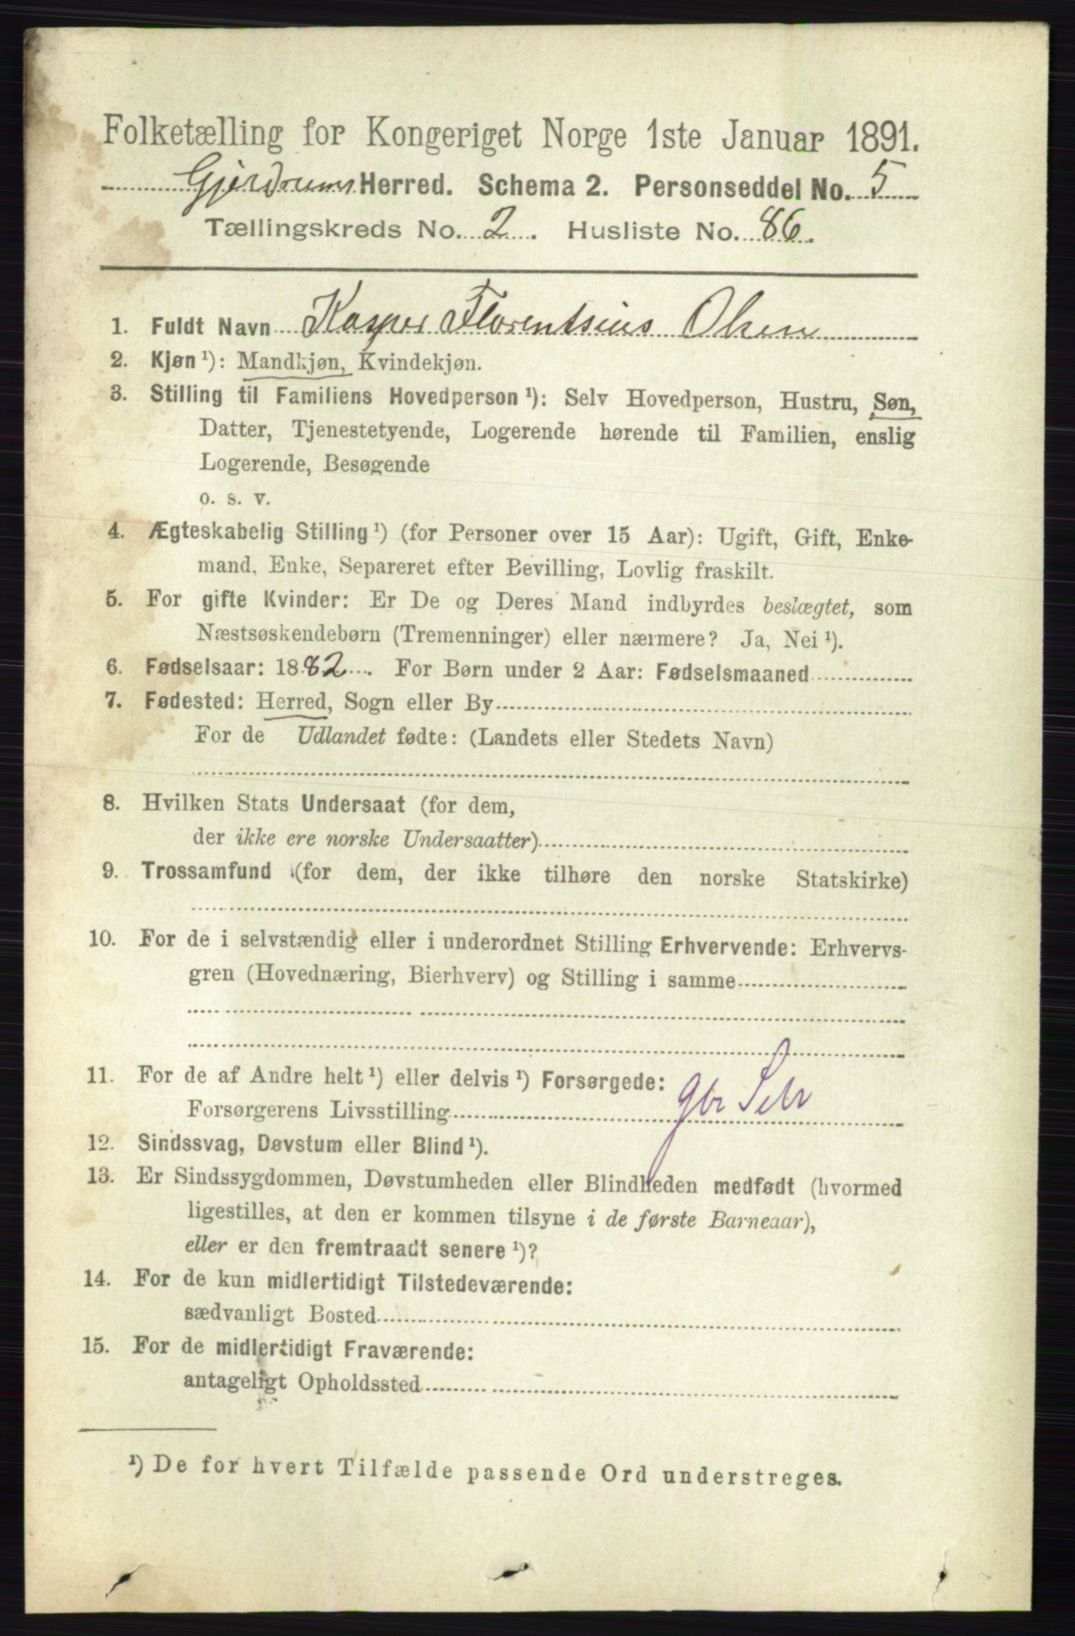 Folketælling for Kongeriget Norge 1ste Januar 1891.
Gjerdrums Herred. Schema 2. Personseddel No. 5
Tællingskreds No. 2. Husliste No. 86.
1. Fuldt Navn Kasper Florentsius Olsen
2. Kjøn ¹): Mandkjøn, Kvindekjøn.
3. Stilling til Familiens Hovedperson ¹): Selv Hovedperson, Hustru, Søn,
Datter, Tjenestetyende, Logerende hørende til Familien, enslig
Logerende, Besøgende
o. s. v.
4. Ægteskabelig Stilling ¹) (for Personer over 15 Aar): Ugift, Gift, Enke-
mand, Enke, Separeret efter Bevilling, Lovlig fraskilt.
5. For gifte Kvinder: Er De og Deres Mand indbyrdes beslægtet, som
Næstsøskendebørn (Tremenninger) eller nærmere? Ja, Nei ¹).
6. Fødselsaar: 1882. For Børn under 2 Aar: Fødselsmaaned
7. Fødested: Herred, Sogn eller By
For de Udlandet fødte: (Landets eller Stedets Navn)
8. Hvilken Stats Undersaat (for dem,
der ikke ere norske Undersaatter)
9. Trossamfund (for dem, der ikke tilhøre den norske Statskirke)
10. For de i selvstændig eller i underordnet Stilling Erhvervende: Erhvervs-
gren (Hovednæring, Bierhverv) og Stilling i samme
11. For de af Andre helt ¹) eller delvis ¹) Forsørgede:
Forsørgerens Livsstilling gbr Selv
12. Sindssvag, Døvstum eller Blind ¹).
13. Er Sindssygdommen, Døvstumheden eller Blindheden medfødt (hvormed
ligestilles, at den er kommen tilsyne i de første Barneaar),
eller er den fremtraadt senere ¹)?
14. For de kun midlertidigt Tilstedeværende:
sædvanligt Bosted
15. For de midlertidigt Fraværende:
antageligt Opholdssted
¹) De for hvert Tilfælde passende Ord understreges.